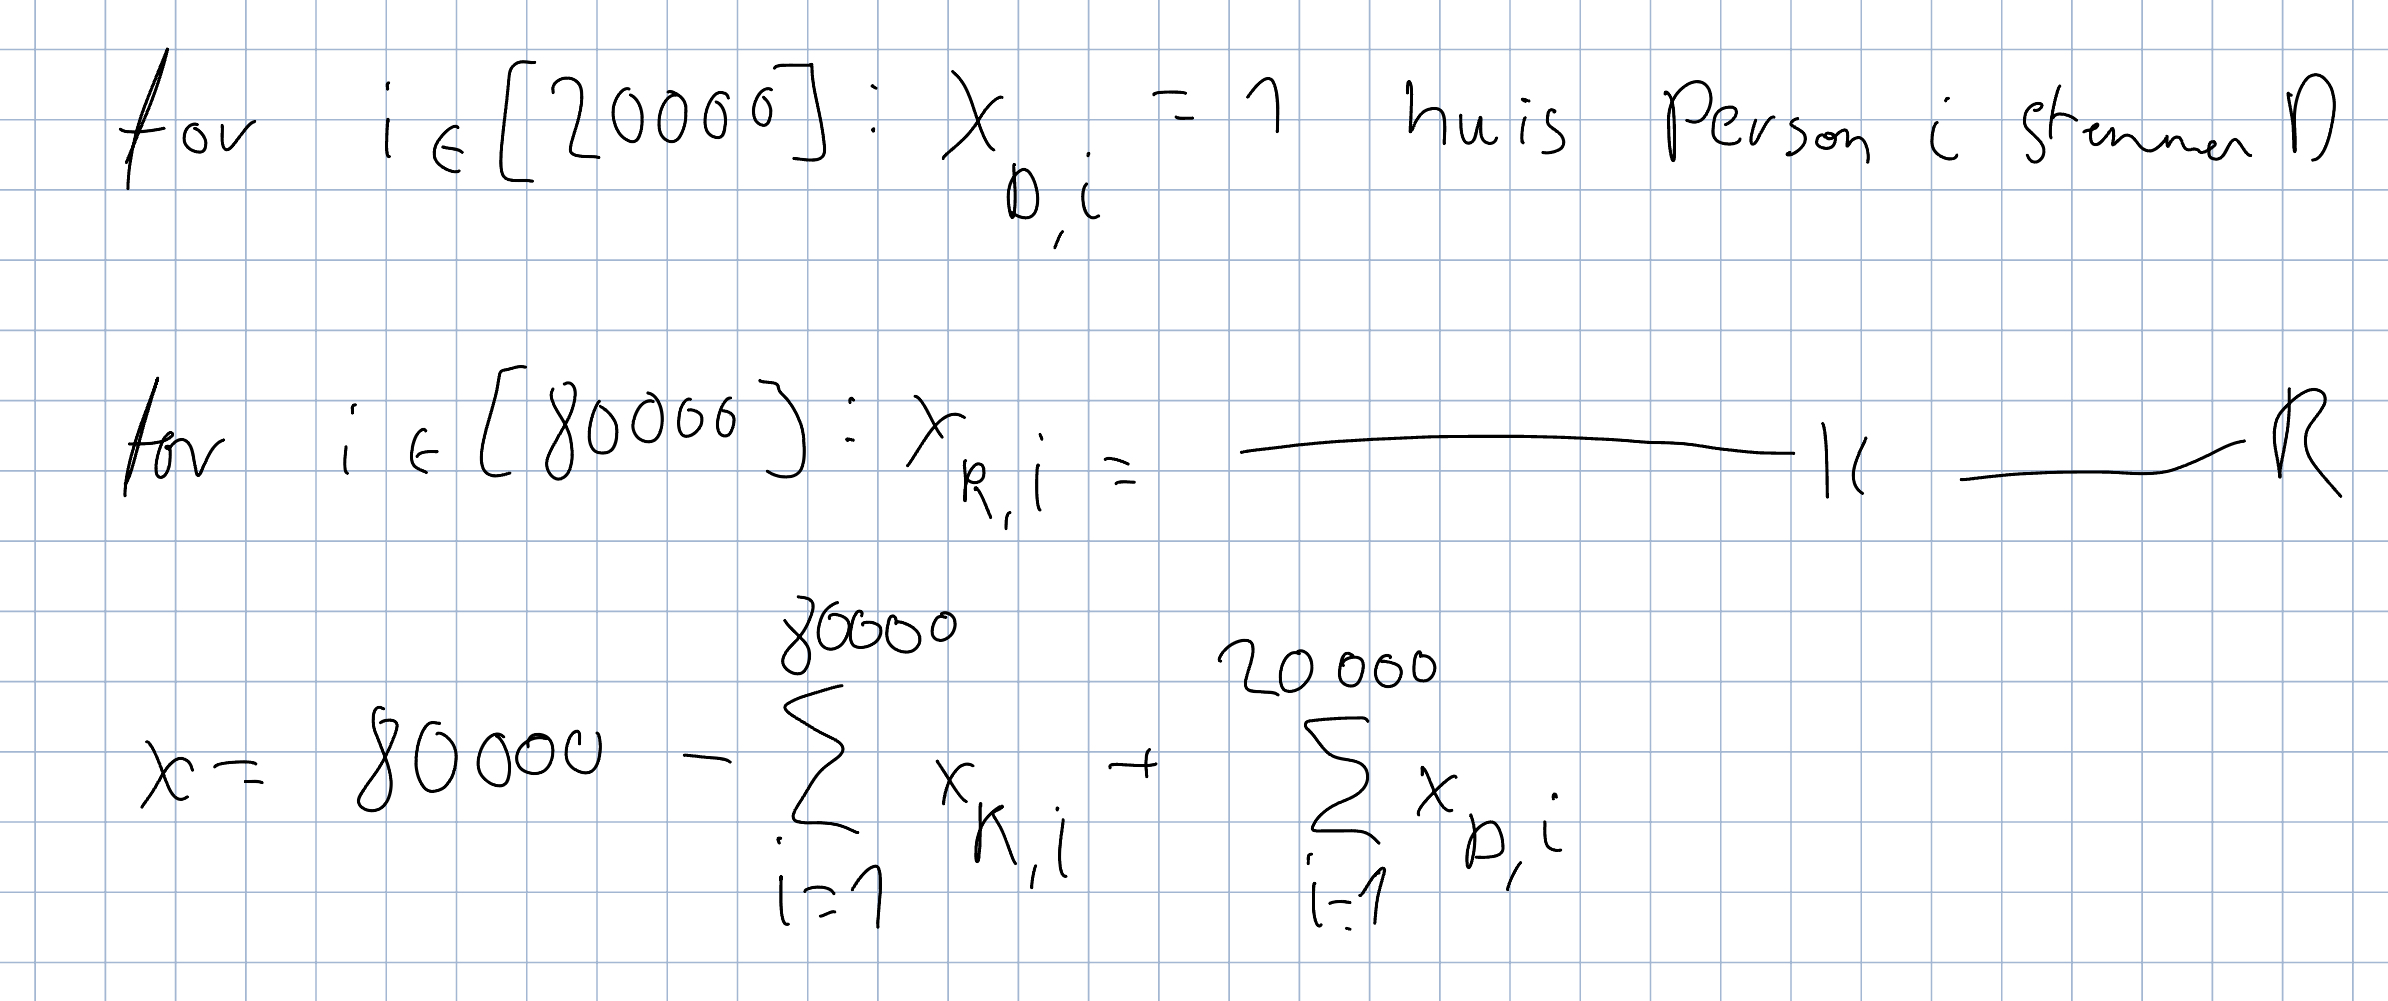 for i ∈ [20000] : X_{D,i} = 1 huis Person i stemmer D
for i ∈ [80000] : X_{R,i} = —— 11 —— R
x = 80000 - \sum_{i=1}^{80000} x_{R,i} + \sum_{i=1}^{20000} x_{D,i}